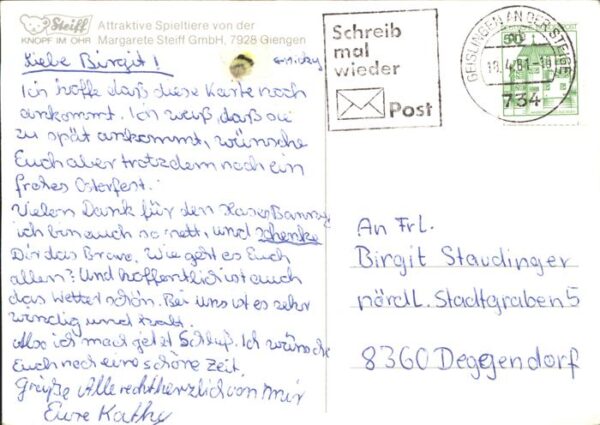 Steiff
KNOPF IM OHR
Attraktive Spieltiere von der
Margarete Steiff GmbH, 7928 Giengen
Liebe Birgit!
Ich hoffe daß diese Karte noch
ankommt. Ich weiß, daß sie
zu spät ankommt, wünsche
Euch aber trotzdem noch ein
frohes Osterfest.
Vielen Dank für den Hasen
ich bin auch so nett, und schenke
Dir das Brave. Wie geht es Euch
allen? Und hoffentlich ist auch
das Wetter schön. Bei uns ist es sehr
windig und kalt.
Also ich mach jetzt Schluß. Ich wünsche
Euch noch eine schöne Zeit.
Grüße Alle recht herzlich von mir
Eure Kathy
Schreib
mal
wieder
Post
GEISLINGEN AN DER STEIGE
734
An Frl.
Birgit Staudinger
nördL. Stadtgraben 5
8360 Deggendorf